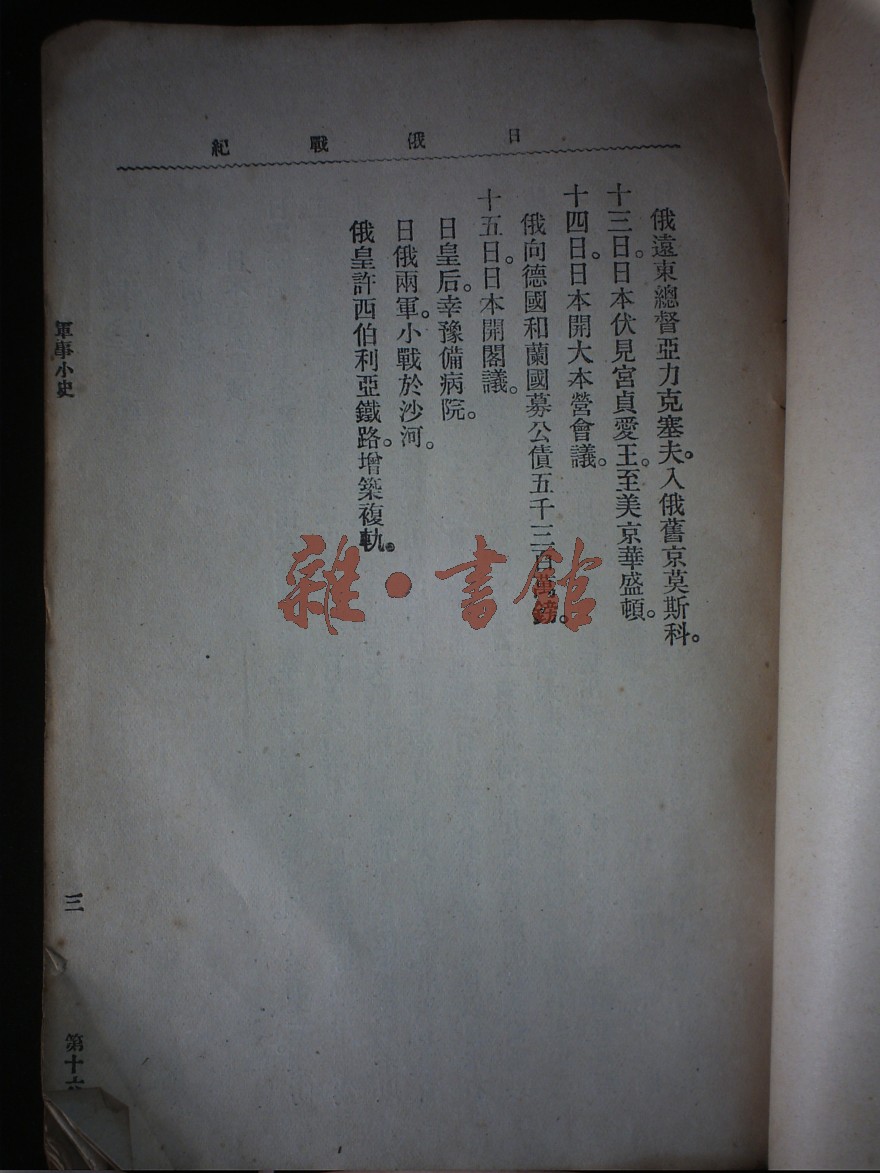 日俄戰紀
俄遠東總督亞力克塞夫。入俄舊京莫斯科。
十三日。日本伏見宮貞愛王。至美京華盛頓。
十四日。日本開大本營會議。
俄向德國和蘭國募公債五千三百萬鎊。
十五日。日本開閣議。
日皇后。幸豫備病院。
日俄兩軍。小戰於沙河。
俄皇許西伯利亞鐵路。增築複軌。
軍事小史
三
第十六
雜·書館